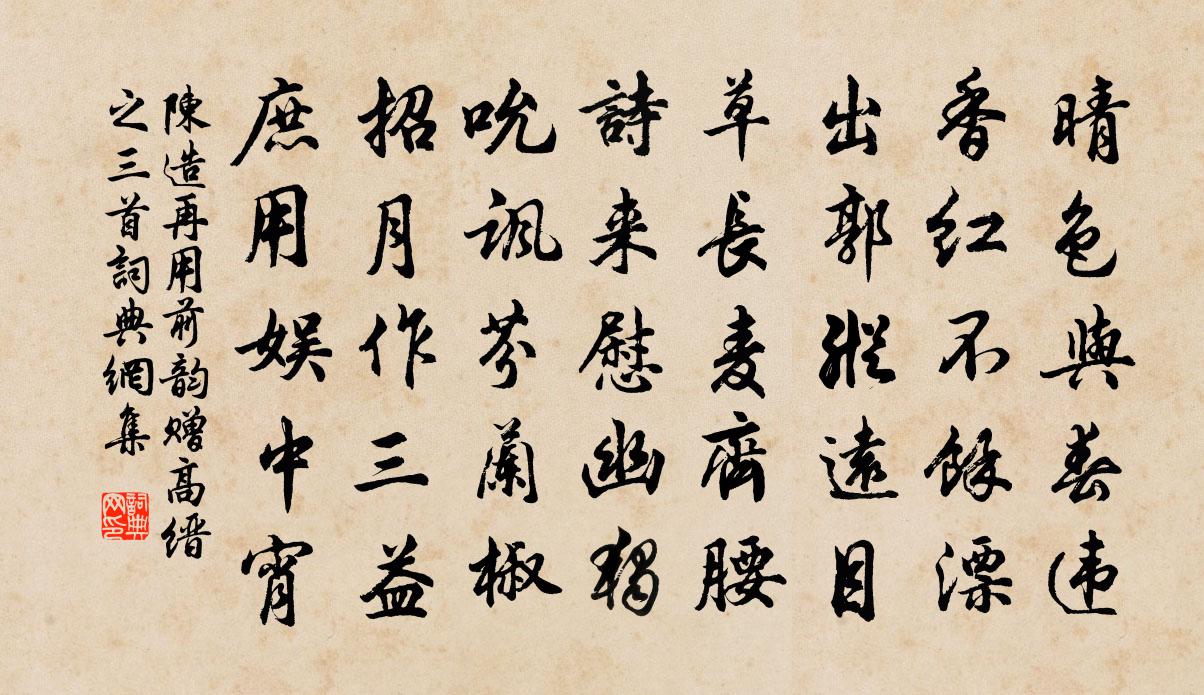 晴色與春违
香红不餘漂
出郭縱遠目
草長麦齊腰
詩来慰幽獨
吮諷芬蘭椒
招月作三益
庶用娱中宵
陳造再用前韵赠高缙
之三首詞典網集
詞典网印